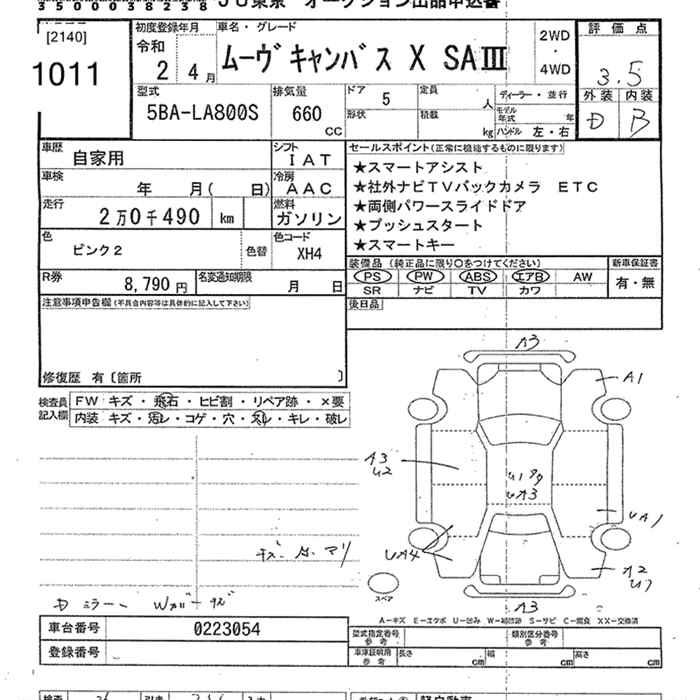 35000038238 JU東京 オークション出品申込書
[2140]
1011
初度登録年月
令和
2年4月
車名・グレード
ムーヴキャンバス X SAⅢ
2WD
・
4WD
評価点
3.5
外装 内装
D B
型式
5BA-LA800S
排気量
660
CC
ドア
5
形状
定員
人
積載
kg
ディーラー・並行
モデル年式 年
ハンドル 左・右
車歴
自家用
シフト
IAT
車検
年 月( 日)
冷房
AAC
走行
2万0千490 km
燃料
ガソリン
色
ピンク2
色替
色コード
XH4
R券
8,790円
名変通知期限
月 日
セールスポイント(正常に機能するものに限ります)
★スマートアシスト
★社外ナビTVバックカメラ ETC
★両側パワースライドドア
★プッシュスタート
★スマートキー
装備品(純正品に限り○をつけてください)
PS PW ABS エアB AW
SR ナビ TV カワ
新車保証書
有・無
後日品
注意事項申告欄(不具合内容等は具体的に記入して下さい)
修復歴 有〔箇所 〕
検査員記入欄
FW キズ・飛石・ヒビ割・リペア跡・×要
内装 キズ・汚レ・コゲ・穴・スレ・キレ・破レ
A3
A1
A3
U2
UA3
UA1
UA4
A2
U1
A3
スペア
Dミラー Wガードキズ
A−キズ E−エクボ U−凹み W−補修跡 S−サビ C−腐食 XX−交換済
車台番号
0223054
登録番号
型式指定番号
参考
類別区分番号
参考
車庫証明用
参考
長さ cm
幅 cm
高さ cm
軽自動車